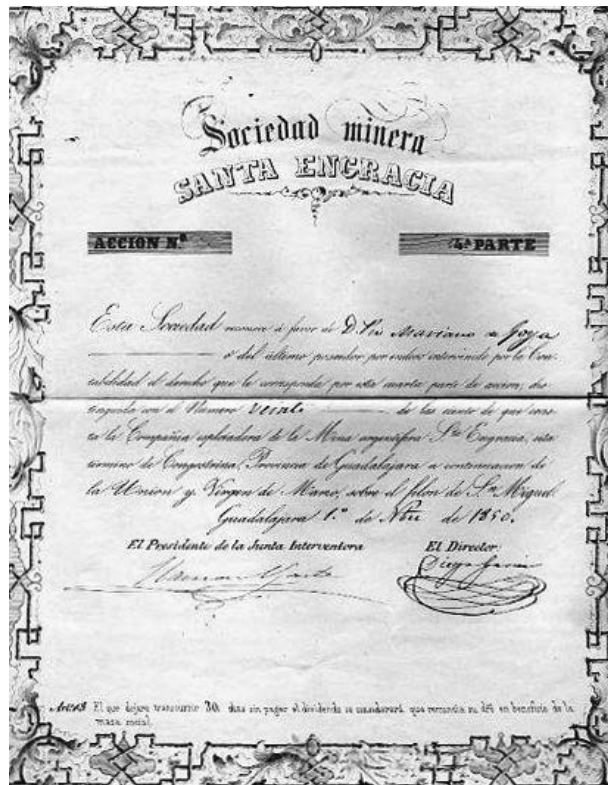 Sociedad minera
SANTA ENGRACIA
ACCION N.º
4ª PARTE
Esta Sociedad reconoce á favor de D. Pio Mariano de Goya
ó del último poseedor por endoso intervenido por la Con-
tabilidad el derecho que le corresponde por esta cuarta parte de accion, dis-
tinguida con el Número veinte de las ciento de que cons-
ta la Compañia esplotadora de la Mina argentifera Sta. Engracia, sita
término de Congostrina, Provincia de Guadalajara a continuacion de
la Union y Virgen de Marzo, sobre el filon de Sn. Miguel.
Guadalajara 1.º de Nbre de 1850.
El Presidente de la Junta Interventora
El Director:
El que dejare transcurrir 30 dias sin pagar el dividendo se considerará que renuncia su dro en beneficio de la
masa social.